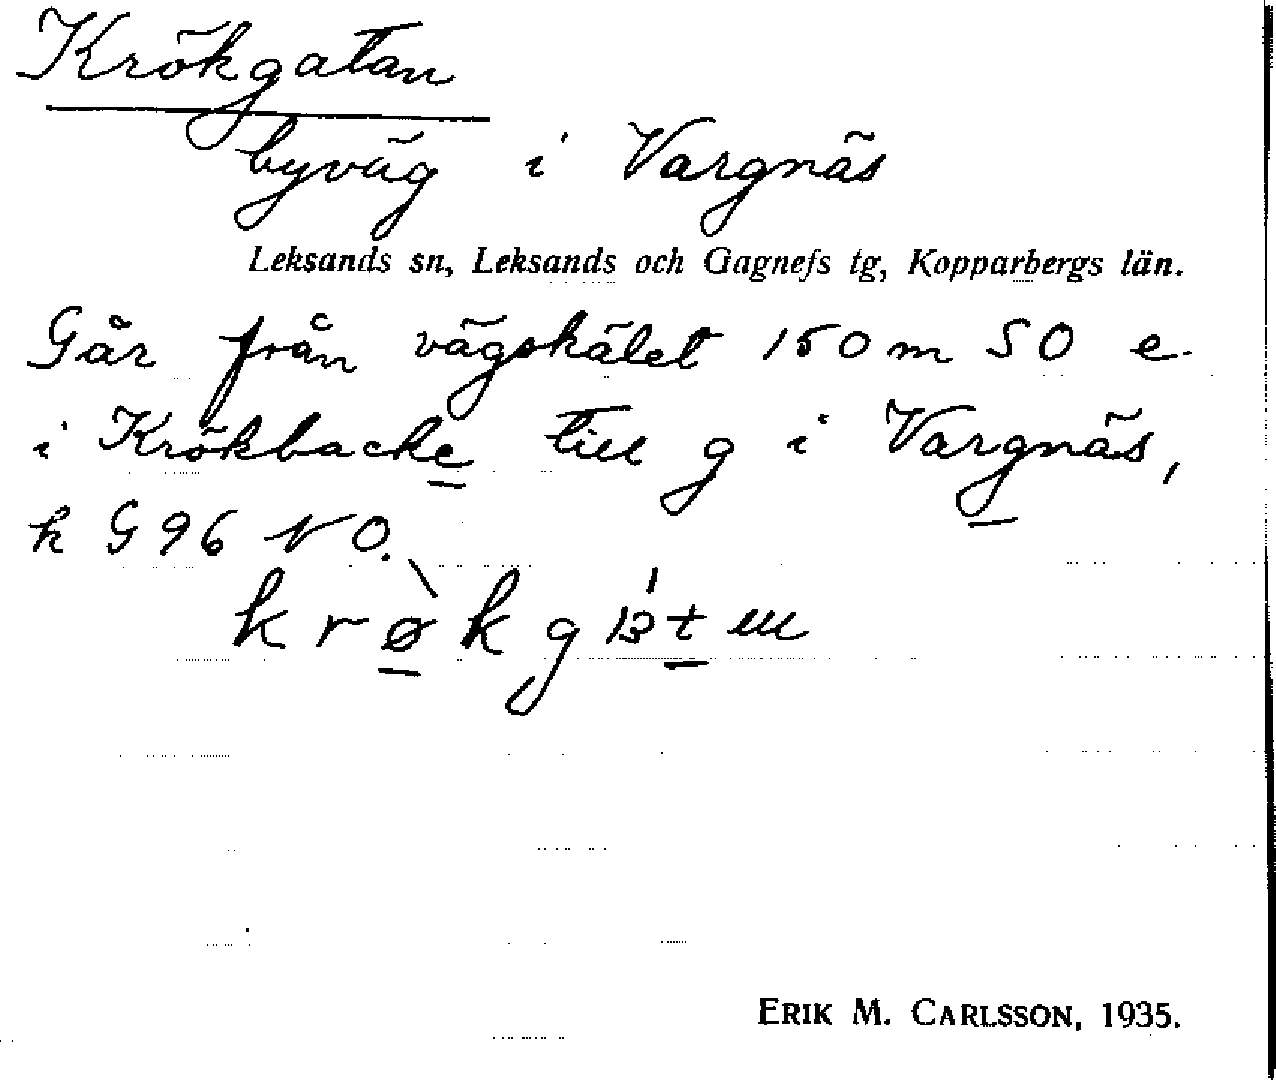 Krökgatan
byväg i Vargnäs
Leksands sn, Leksands och Gagnefs tg, Kopparbergs län.
Går från vägskälet 150 m SO e.
i Krökbacke till g i Vargnäs,
k G 96 NO.
ERIK M. CARLSSON, 1935.